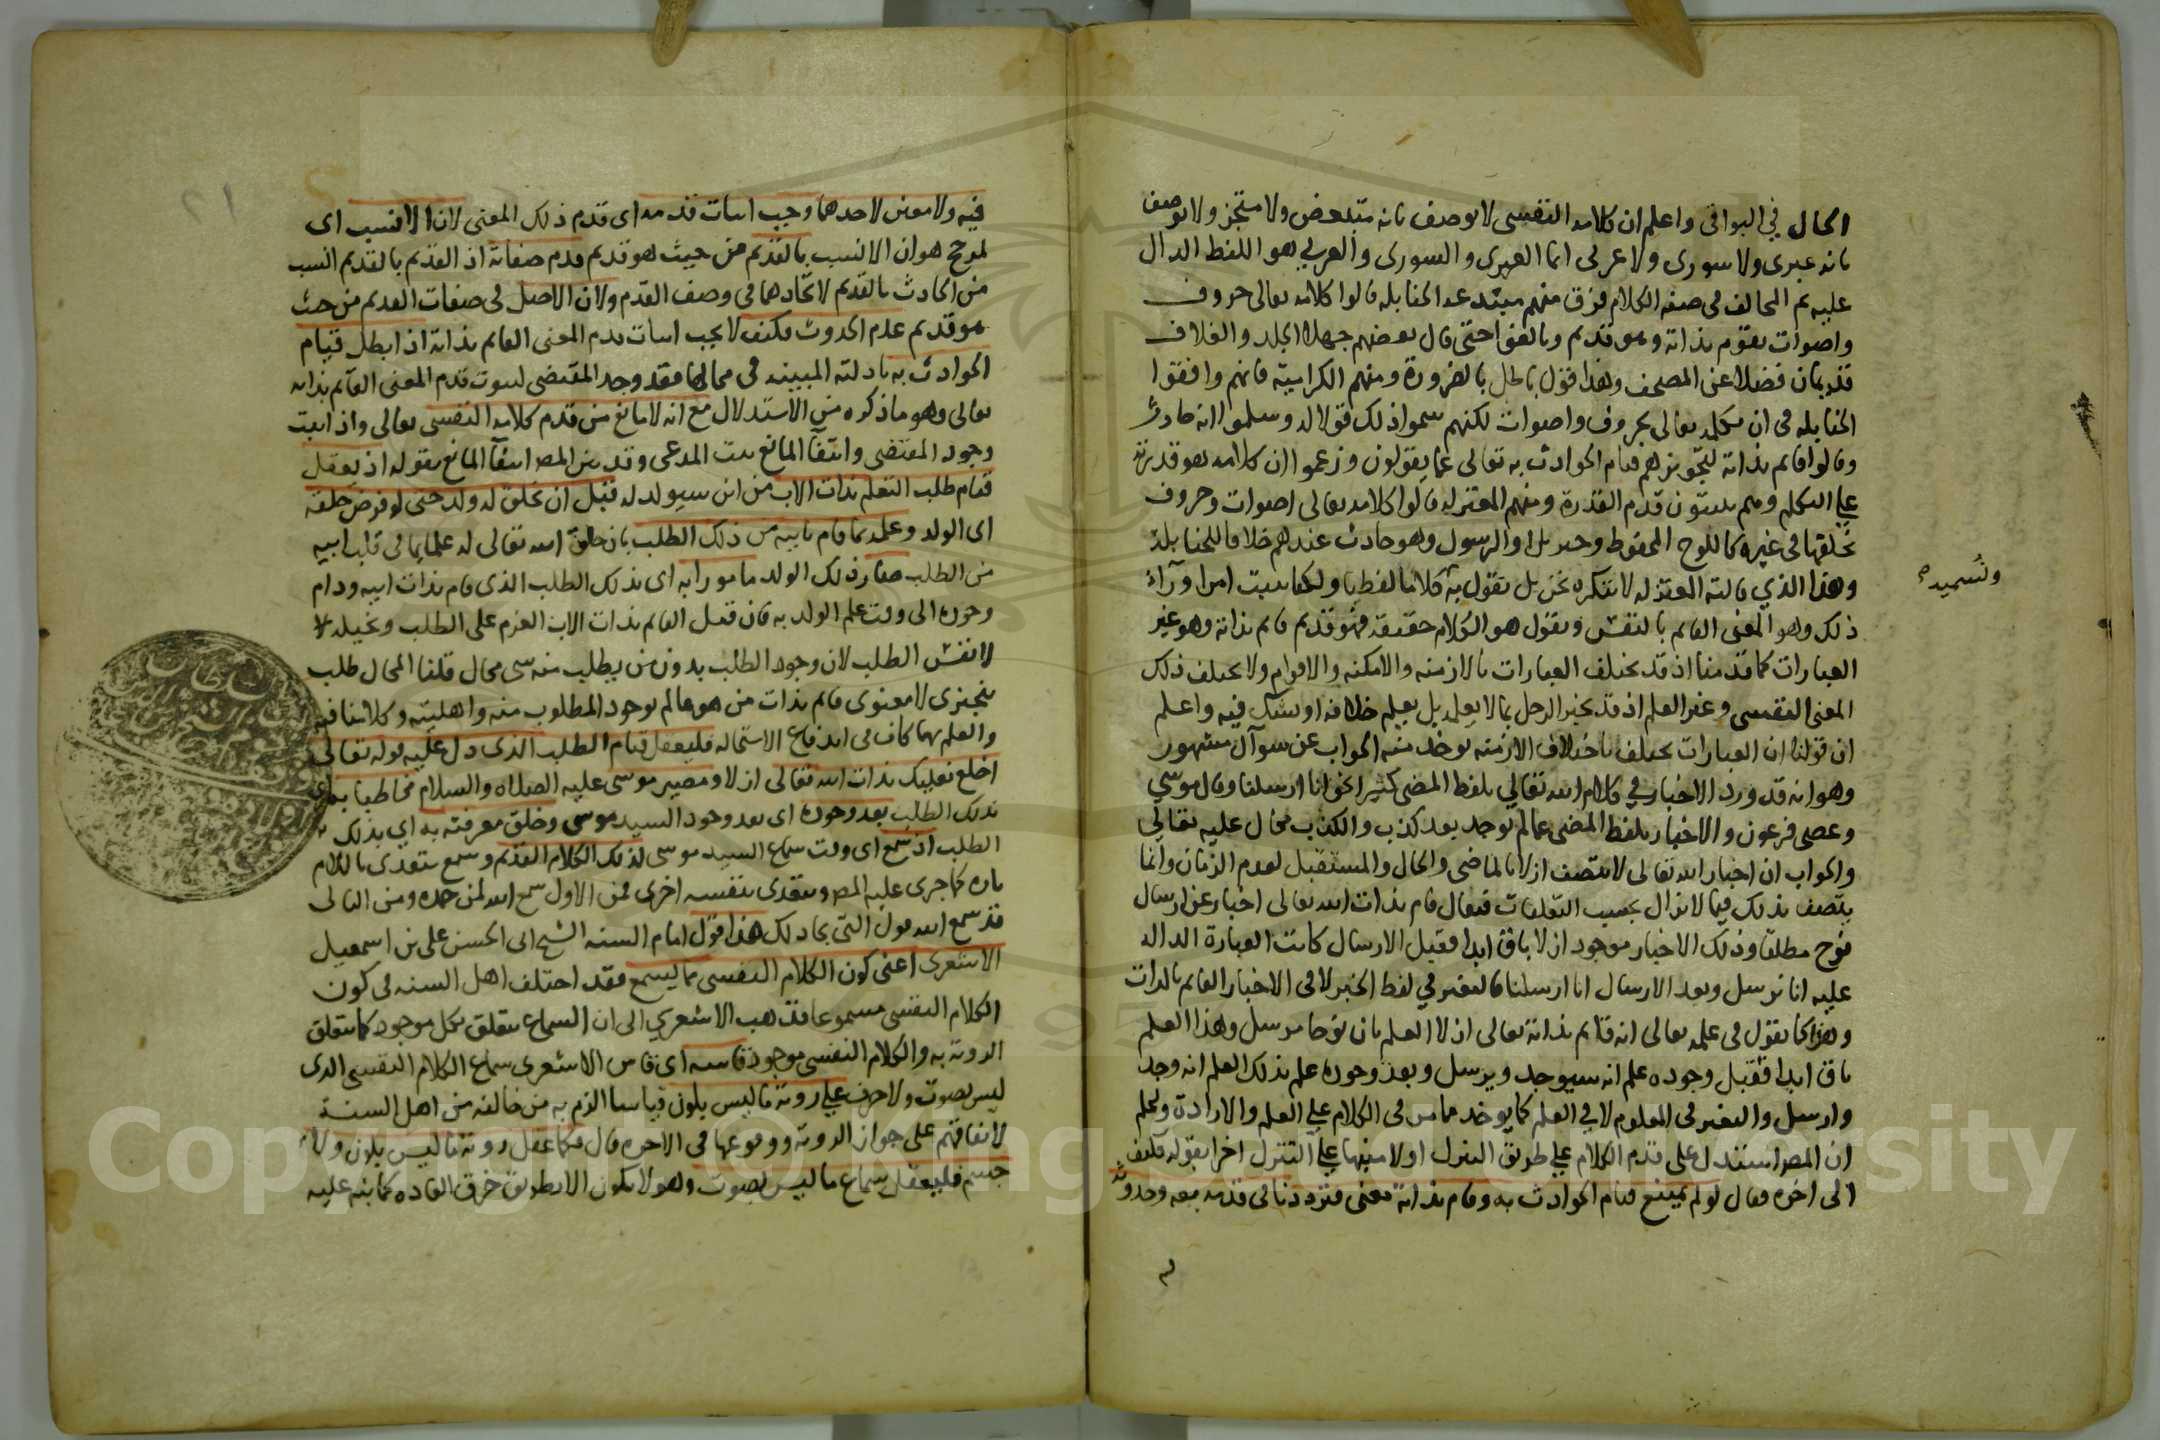 الحال في البواقى واعلم ان كلامه النفسى لا يوصف بانه متبعض ولا متجز ولا يوصف
بانه عبرى ولا سورى ولا عربى انما العبرى والسورى والعربي هو اللفظ الدال
عليه ثم المخالف فى صفة الكلام فرق منهم مبتدعة الحنابله قالوا كلامه تعالى حروف
واصوات تقوم بذاته وهو قديم وبالغوا حتى قال بعضهم جهلا الجلد والغلاف
قديمان فضلا عن المصحف وهذا قول باطل بالضرورة ومنهم الكراميه فانهم وافقوا
الحنابله فى ان كلامه تعالى بحروف واصوات لكنهم سموا ذلك قولا له وسلموا انه حادث
وقالوا قايم بذاته لتجويزهم قيام الحوادث به تعالى عما يقولون وزعموا ان كلامه هو قدرته
على التكلم وهم يثبتون قدم القدرة ومنهم المعتزله قالوا كلامه تعالى اصوات وحروف
يخلقها فى غيره كاللوح المحفوظ وجبريل او الرسول وهو حادث عندهم خلافا للحنابلة
وهذا الذي قالته المعتزله لا ننكره نحن بل نقول به كلاما لفظيا ولكنا نثبت امرا وراء
ونسميه
ذلك وهو المعنى القايم بالنفس ونقول هو الكلام حقيقة فهو قديم قايم بذاته وهو غير
العبارات كما قدمنا اذ قد تختلف العبارات بالازمنه والامكنه والاقوام ولا يختلف ذلك
المعنى النفسى وغير العلم اذ قد يخبر الرجل بما لا يعلمه بل يعلم خلافه او يشك فيه واعلم
ان قولنا ان العبارات تختلف باختلاف الازمنه يوخذ منه الجواب عن سوآل مشهور
وهو انه قد ورد الاخبار في كلام الله تعالي بلفظ المضى كثيرا نحو انا ارسلنا وقال موسي
وعصى فرعون والاخبار بلفظ المضى عما لم يوجد بعد كذب والكذب محال عليه تعالي
والجواب ان اخبار الله تعالى لا يتصف ازلا بالماضى والحال والمستقبل لعدم الزمان وانما
يتصف بذلك فيما لا يزال بحسب التعلقات فيقال قام بذات الله تعالى اخبار عن ارسال
نوح مطلقا وذلك الاخبار موجود ازلا باق ابدا فقبل الارسال كانت العبارة الداله
عليه انا نرسل وبعد الارسال انا ارسلنا فالتغير في لفظ الخبر لا فى الاخبار القايم بالذات
وهذا كما نقول فى علمه تعالى انه قايم بذاته تعالى ازلا العلم بان نوحا مرسل وهذا العلم
باق ابدا فقبل وجوده علم انه سيوجد ويرسل وبعد وجوده علم بذلك العلم انه وجد
وارسل والتغير فى المعلوم لا في العلم كما يوخذ مما مر فى الكلام على العلم والارادة واعلم
ان المصر استدل على قدم الكلام على طريق التنزل اولا منبها على التنزل اخرا بقوله فكيف
الى اخره فقال لو لم يمتنع قيام الحوادث به وقام بذاته معنى فترددنا فى قدمه معه وحدوثه
فيه ولا معين لاحدهما وجب اثبات قدمه اى قدم ذلك المعنى لان الانسب اى
لمرجح هو ان الانسب بالقديم من حيث هو قديم قدم صفاته اذ القديم بالقديم انسب
من الحادث بالقديم لاتحادهما في وصف القدم ولان الاصل فى صفات القديم من حيث
هو قديم عدم الحدوث فكيف لا يجب اثبات قدم المعنى القايم بذاته اذا بطل قيام
الحوادث به بادلته المبينه فى محالها فقد وجد المقتضى لثبوت قدم المعنى القايم بذاته
تعالى وهو ما ذكره من الاستدلال مع انه لا مانع من قدم كلامه النفسى تعالى واذا ثبت
وجود المقتضى وانتفآ المانع ثبت المدعى وقد بين المصر انتفآ المانع بقوله اذ يعقل
قيام طلب التعلم بذات الاب من ابن سيولد له قبل ان يخلق له ولد حتى لو فرض خلقه
اى الولد وعلمه بما قام بابيه من ذلك الطلب بان خلق الله تعالى له علما بما فى قلب ابيه
من الطلب صار ذلك الولد مامورا به اى بذلك الطلب الذى قام بذات ابيه ودام
وجوده الى وقت علم الولد به فان قيل القايم بذات الاب العزم على الطلب وتخيله
لا نفس الطلب لان وجود الطلب بدون من يطلب منه شى محال قلنا المحال طلب
تنجيزى لا معنوى قايم بذات من هو عالم بوجود المطلوب منه واهليته وكلامنا فيه
والعلم بهما كاف فى اندفاع الاستحاله فليعقل قيام الطلب الذى دل عليه قوله تعالى
اخلع نعليك بذات الله تعالى ازلا ومصير موسى عليه الصلاه والسلام مخاطبا به اى
بذلك الطلب بعد وجوده اى بعد وجود السيد موسى وخلق معرفته به اي بذلك
الطلب اذ سمع اى وقت سماع السيد موسى لذلك الكلام القديم وسمع يتعدى باللام
تاره كما جرى عليه المصر ويتعدى بنفسه اخرى فمن الاول سمع الله لمن حمده ومن الثانى
قد سمع الله قول التى تجادلك هذا قول امام السنه الشيخ ابى الحسن على بن اسمعيل
الاشعرى اعنى كون الكلام النفسى مما يسمع فقد اختلف اهل السنه فى كون
الكلام النفسى مسموعا فذهب الاشعري الى ان السماع يتعلق بكل موجود كما يتعلق
الرويه به والكلام النفسى موجود قاسه اى قاس الاشعرى سماع الكلام النفسى الذى
ليس بصوت ولا حرف على روية ما ليس بلون قياسا الزم به من خالفه من اهل السنة
لاتفاقهم على جواز الروية ووقوعها فى الاخره قال فكما عقل روية ما ليس بلون ولا
جسم فليعقل سماع ما ليس بصوت وهو لا يكون الا بطريق خرق العاده كما نبه عليه
Copyright © King Saud University